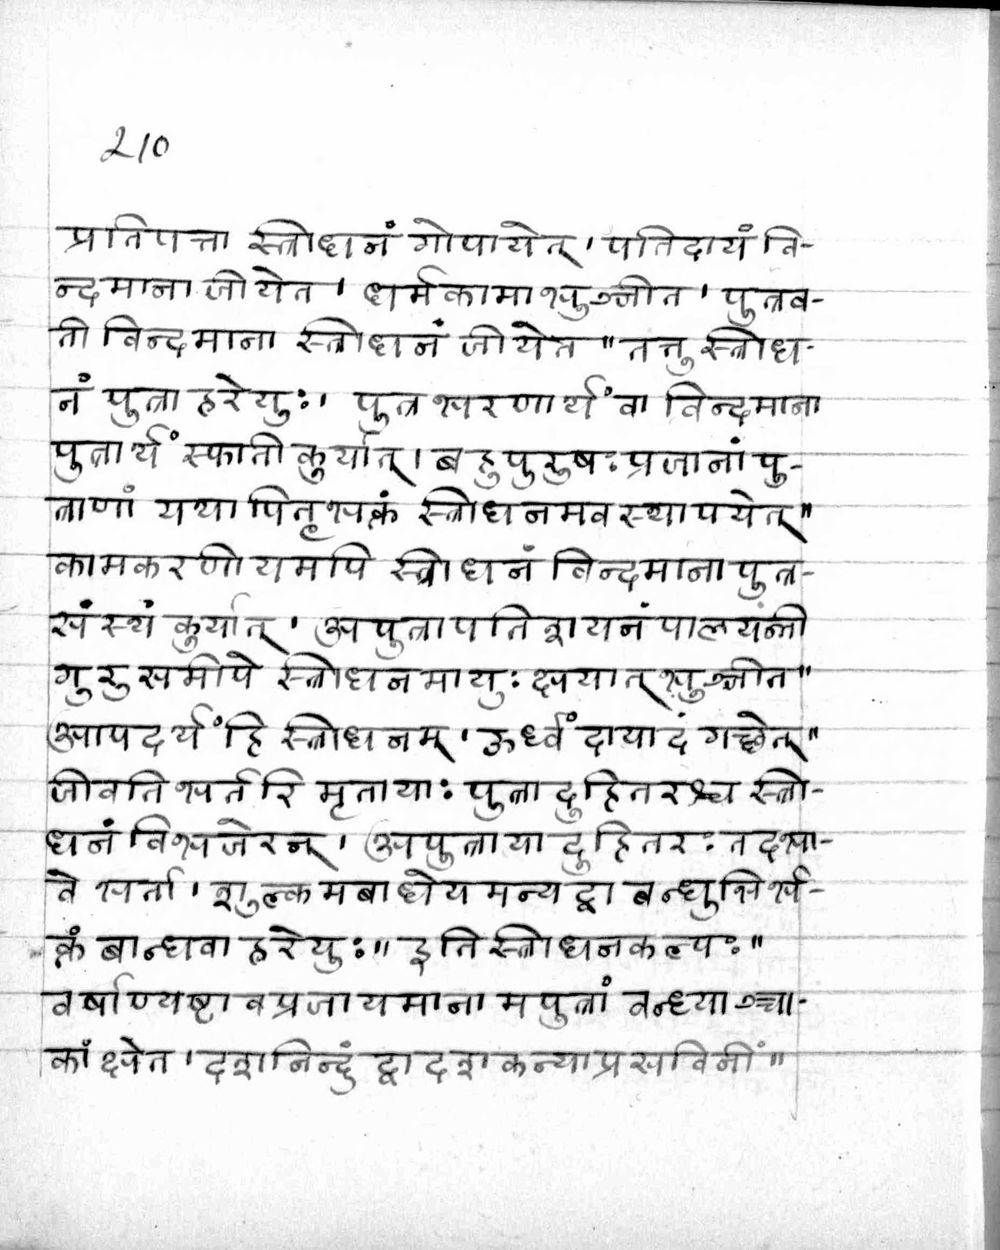 210
प्रतिपत्ता स्त्रीधनं गोपायेत् । पतिदायं वि-
न्दमाना जीयेत । धर्मकामा भुञ्जीत । पुत्रव-
ती विन्दमाना स्त्रीधनं जीयेत ॥ तत्तु स्त्रीध-
नं पुत्रा हरेयुः । पुत्रभरणार्थं वा विन्दमाना
पुत्रार्थं स्फाती कुर्यात् । बहुपुरुषः प्रजानां पु-
त्राणां यथा पितृभत्कं स्त्रीधनमवस्थापयेत् ॥
कामकरणीयमपि स्त्रीधनं विन्दमाना पुत्र-
संस्थं कुर्यात् । अपुत्रा पतिशयनं पालयंन्ती
गुरुसमीपे स्त्रीधनमायुः क्षयात् भुञ्जीत ॥
आपदर्थं हि स्त्रीधनम् । ऊर्ध्वं दायादं गच्छेत् ॥
जीवति भर्तरि मृतायाः पुत्रा दुहितरश्च स्त्री-
धनं विभजेरन् । अपुत्राया दुहितरः तदभा-
वे भर्ता । शुल्कमबाधेयमन्यद्वा बन्धुभिर्भ-
त्कं बान्धवा हरेयुः ॥ इति स्त्रीधनकल्पः ॥
वर्षाण्यष्टावप्रजायमानामपुत्रां वन्ध्याञ्चा-
कांक्षेत । दशनिन्दुं द्वादश कन्याप्रसविनीं ॥